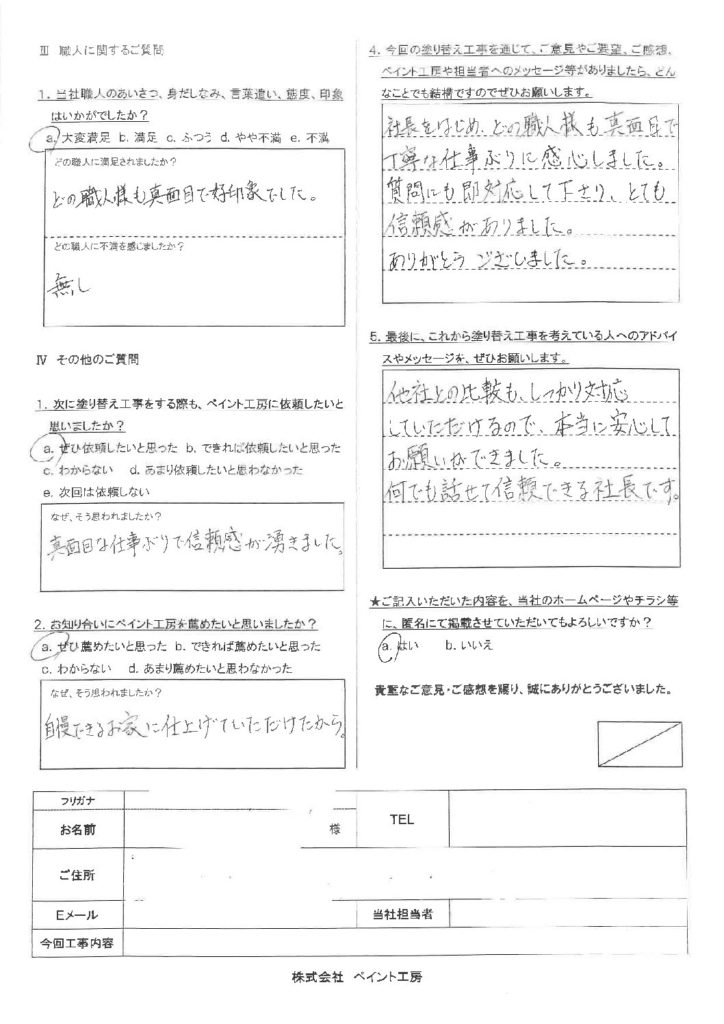 Ⅲ 職人に関するご質問
1. 当社職人のあいさつ、身だしなみ、言葉遣い、態度、印象
はいかがでしたか?
a. 大変満足 b. 満足 c. ふつう d. やや不満 e. 不満
どの職人に満足されましたか?
どの職人様も真面目で好印象でした。
どの職人に不満を感じましたか?
無し
Ⅳ その他のご質問
1. 次に塗り替え工事をする際も、ペイント工房に依頼したいと
思いましたか?
a. ぜひ依頼したいと思った b. できれば依頼したいと思った
c. わからない d. あまり依頼したいと思わなかった
e. 次回は依頼しない
なぜ、そう思われましたか?
真面目な仕事ぶりで信頼感が湧きました。
2. お知り合いにペイント工房を薦めたいと思いましたか?
a. ぜひ薦めたいと思った b. できれば薦めたいと思った
c. わからない d. あまり薦めたいと思わなかった
なぜ、そう思われましたか?
自慢できるお家に仕上げていただけたから。
4. 今回の塗り替え工事を通じて、ご意見やご要望、ご感想、
ペイント工房や担当者へのメッセージ等がありましたら、どん
なことでも結構ですのでぜひお願いします。
社長をはじめ、どの職人様も真面目で
丁寧な仕事ぶりに感心しました。
質問にも即対応して下さり、とても
信頼感がありました。
ありがとうございました。
5. 最後に、これから塗り替え工事を考えている人へのアドバイ
スやメッセージを、ぜひお願いします。
他社との比較も、しっかり対応
していただけるので、本当に安心して
お願いができました。
何でも話せて信頼できる社長です。
★ご記入いただいた内容を、当社のホームページやチラシ等
に、匿名にて掲載させていただいてもよろしいですか?
a. はい b. いいえ
貴重なご意見・ご感想を賜り、誠にありがとうございました。
フリガナ
お名前 様 TEL
ご住所
Eメール 当社担当者
今回工事内容
株式会社 ペイント工房